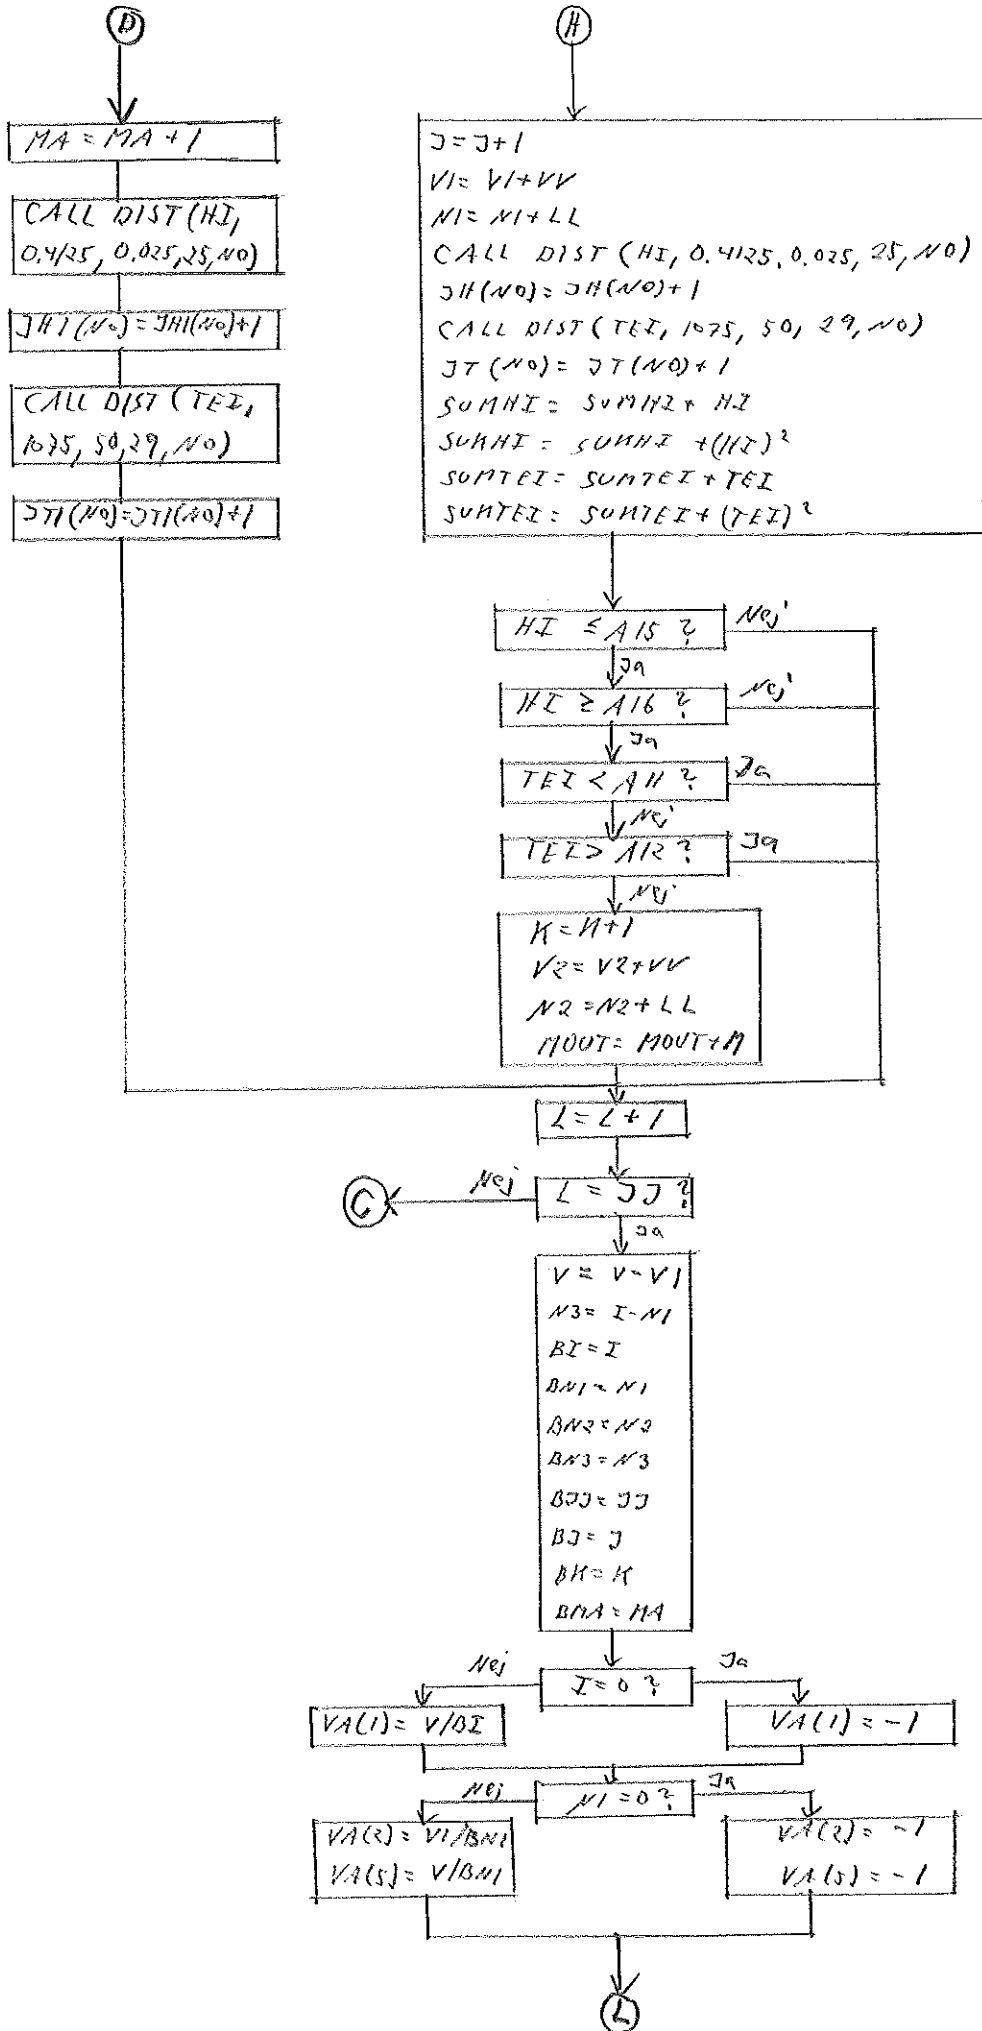 D
MA = MA + 1
CALL DIST (HI,
0.4125, 0.025, 25, NO)
JHI(NO) = JHI(NO)+1
CALL DIST (TEI,
1075, 50, 29, NO)
JTI(NO)=JTI(NO)+1
H
J = J+1
V1= V1+VV
N1= N1+LL
CALL DIST (HI, 0.4125, 0.025, 25, NO)
JH(NO)= JH(NO)+1
CALL DIST (TEI, 1075, 50, 29, NO)
JT(NO)= JT(NO)+1
SUMHI= SUMHI+ HI
SUNHI= SUNHI +(HI)²
SUMTEI= SUMTEI+TEI
SUNTEI= SUNTEI+(TEI)²
HI ≤ A15 ?
Nej
Ja
HI ≥ A16 ?
Nej
Ja
TEI < A11 ?
Ja
Nej
TEI> A12 ?
Ja
Nej
K=K+1
V2=V2+VV
N2=N2+LL
MOUT=MOUT+M
L=L+1
Nej
L = JJ ?
G
Ja
V = V-V1
N3= I-N1
BI=I
BN1=N1
BN2=N2
BN3=N3
BJJ=JJ
BJ=J
BK=K
BMA=MA
Nej
I=0 ?
Ja
VA(1)= V/BI
VA(1)=-1
Nej
N1=0 ?
Ja
VA(2)=V1/BN1
VA(5)=V/BN1
VA(2)=-1
VA(5)=-1
L